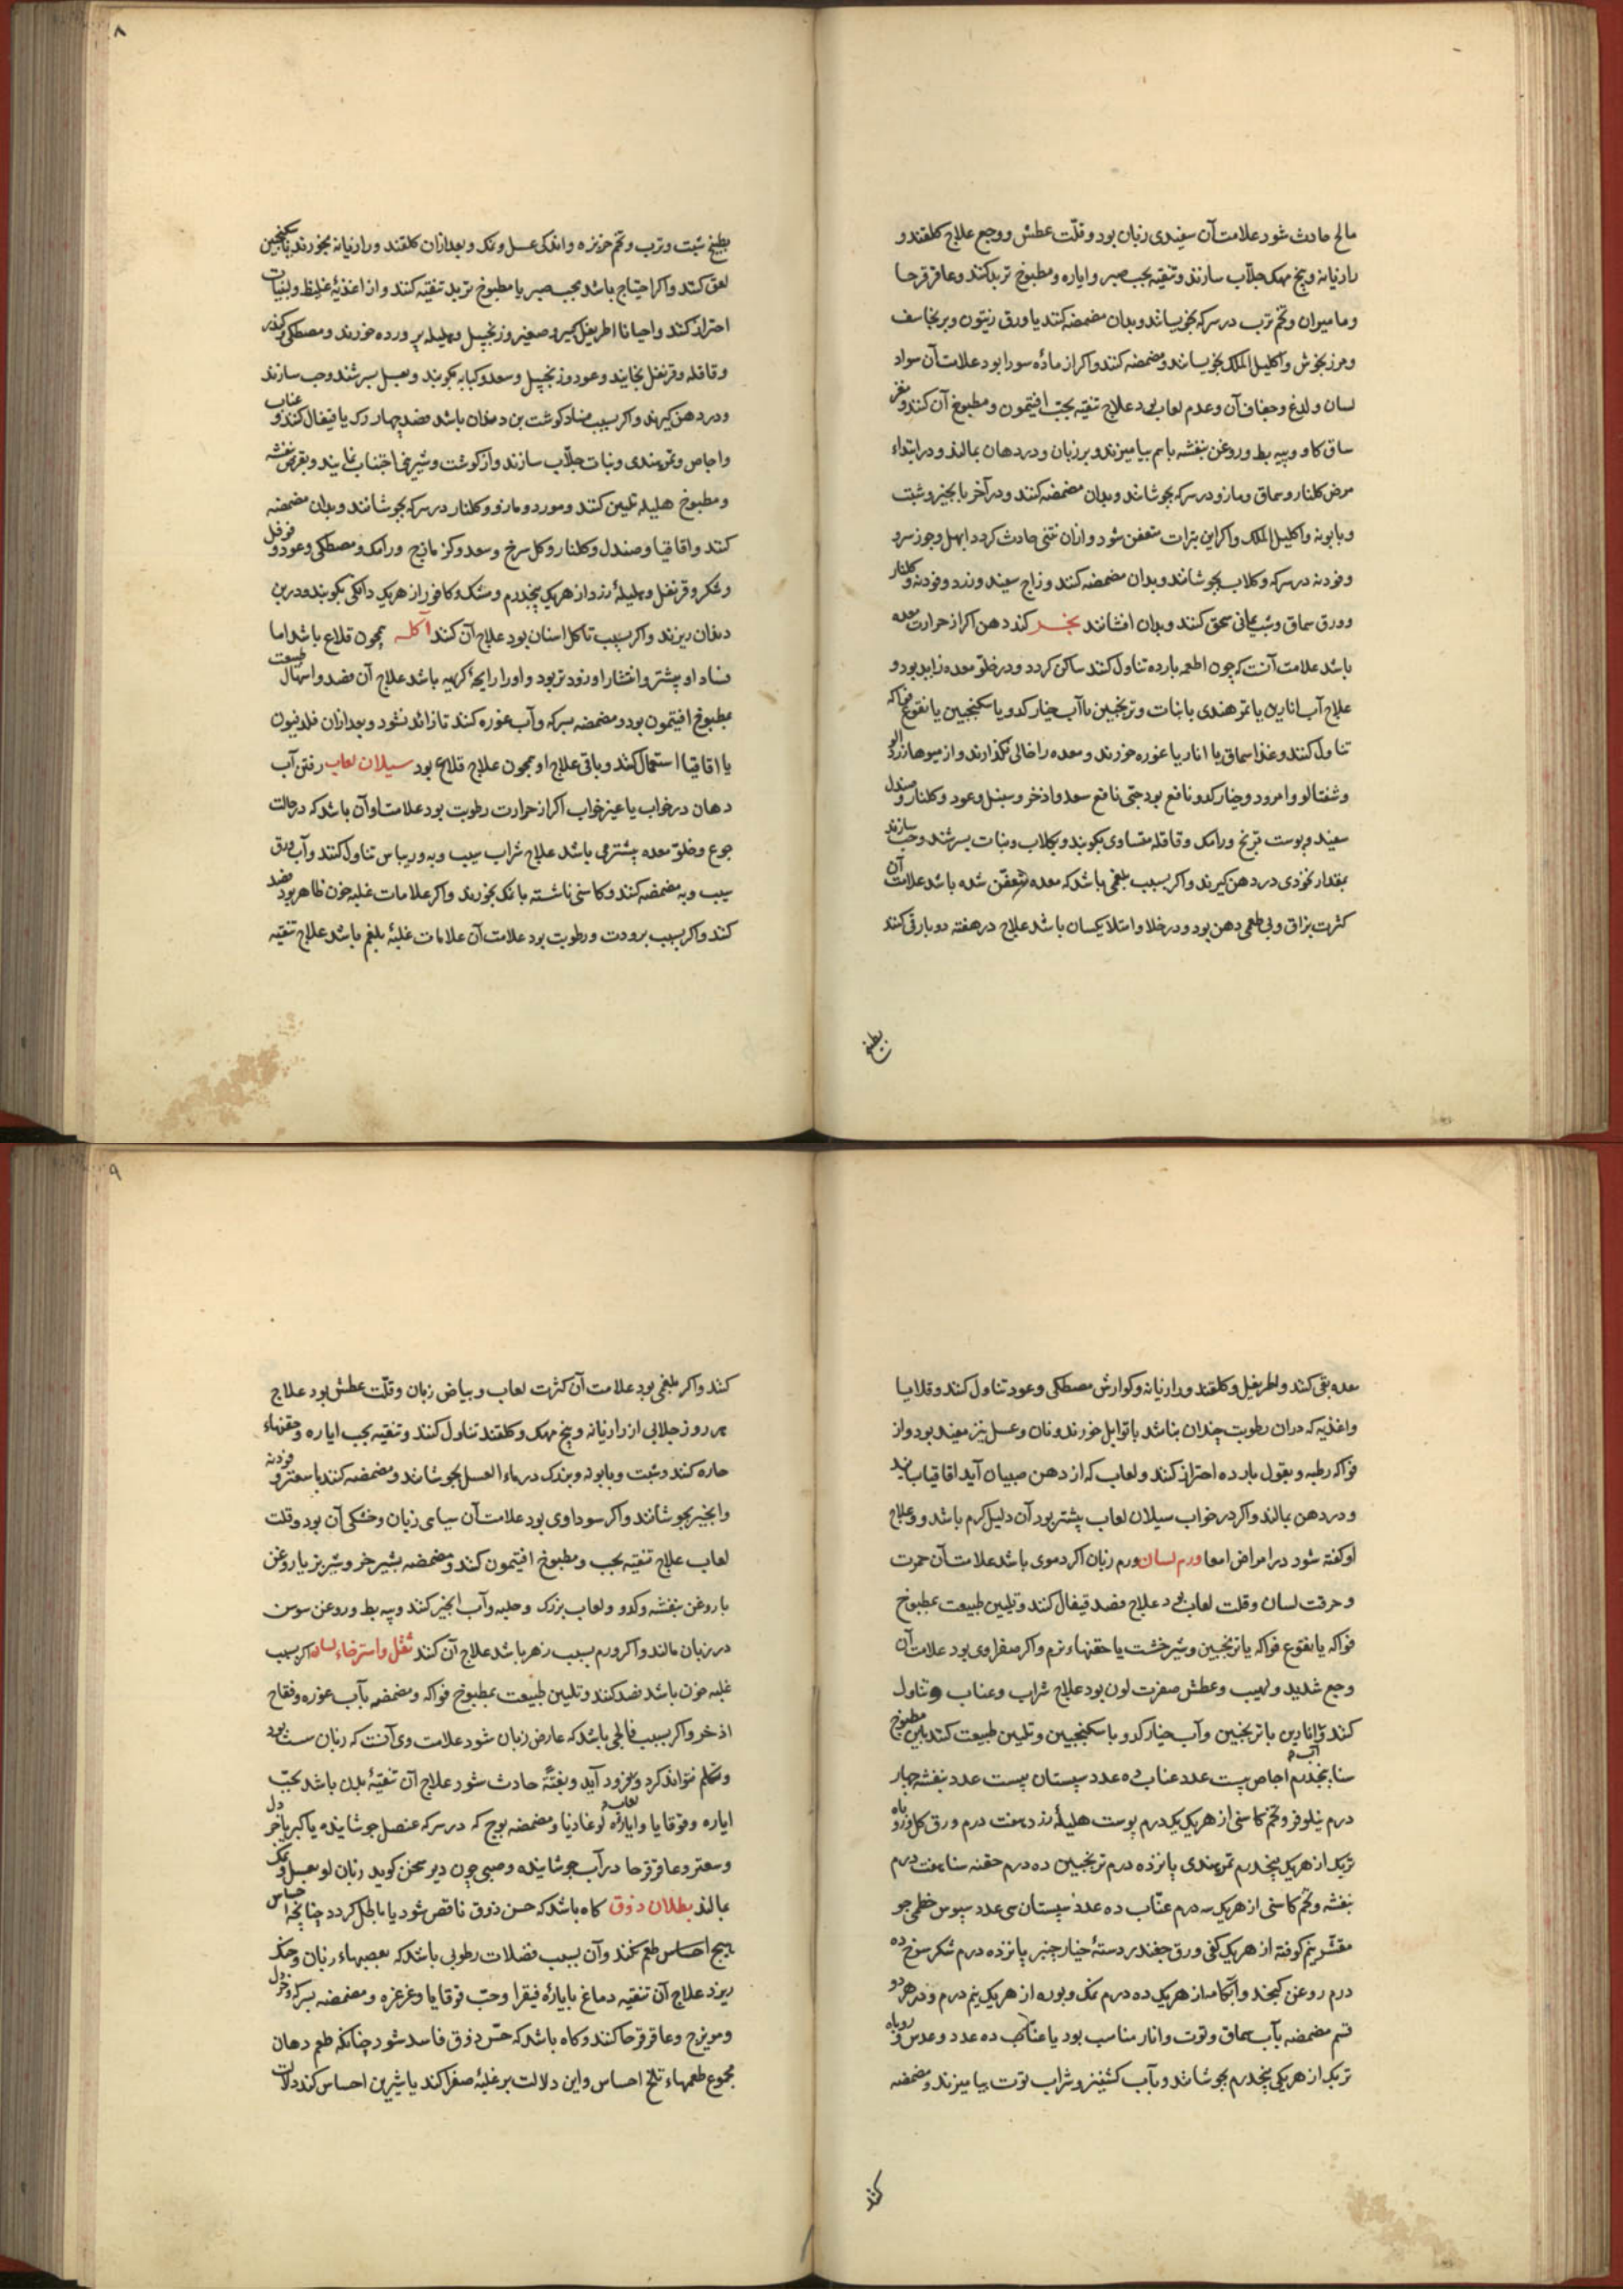 مالح حادث شود علامت آن سفیدی زبان بود و قلّت عطش و وجع علاج کلقند و
رازیانه و بیخ مهک جلّاب سازند و تنقیه بحب صبر و ایاره و مطبوخ تربد کنند و عاقرقرحا
و مامیران و تخم ترب در سرکه بجوشانند و بدان مضمضه کنند یا ورق زیتون و برنجاسف
و مرزنجوش و اکلیل الملک بجوشانند و مضمضه کنند و اکر از مادّه سودا بود علامت آن سواد
لسان و لذع و جفاف آن و عدم لعاب بود علاج تنقیه بحبّ افتیمون و مطبوخ آن کنند و مغز
ساق کاو و پیه بط و روغن بنفشه باهم بیامیزند و بر زبان و در دهان بمالند و در ابتداء
مرض کلنار و سماق و مازو در سرکه بجوشانند و بدان مضمضه کنند و در آخر با انجیر و شبت
و بابونه و اکلیل الملک و اکر این بثرات متعفن شود و ازان نتنی حادث کردد ابهل و جوز سرو
و فودنه در سرکه و کلاب بجوشانند و بدان مضمضه کنند و زاج سفید و زرد و فودنه و کلنار
و ورق سماق و شب یمانی سحق کنند و بدان افشانند بخر کند دهن اکر از حرارت معده
باشد علامت آنست که چون اطعمه بارده تناول کنند ساکن کردد و در خلو معده زاید بود و
علاج آب انارین یا تمر هندی با نبات و ترنجبین با آب خیار کدو یا سکنجبین یا نقوع فواکه
تناول کنند و غذا سماق یا انار یا غوره خورند و معده را خالی نکذارند و از میوها زرد آلو
و شفتالو و امرود و خیار کدو نافع بود حبّی نافع سعد و اذخر و سنبل و عود و کلنار و صندل
سفید و پوست ترنج و رامک و قاقله متساوی بکوبند و بکلاب و نبات بسرشند و حب سازند
بمقدار نخودی در دهن کیرند و اکر بسبب بلغمی باشد که معده متعفّن شده باشد علامت آن
کثرت بزاق و بی طعمی دهن بود و در خلا و امتلا یکسان باشد علاج در هفته دو بار قی کنند
بطبخ
۸
بطبخ شبت و ترب و تخم خربزه و اندکی عسل و نمک و بعد ازان کلقند و رازیانه بخورند با سکنجبین
لعق کنند و اکر احتیاج باشد بحب صبر یا مطبوخ تربد تنقیه کنند و از اغذیهٔ غلیظ و لبنیات
احتراز کنند و احیانا اطریفل کبیر و صغیر و زنجبیل و هلیله پرورده خورند و مصطکی و کندر
و قاقله و قرنفل بخایند و عود و زنجبیل و سعد و کبابه بکوبند و بعسل بسرشند و حب سازند
و در دهن کیرند و اکر بسبب فساد کوشت بن دندان باشد فصد چهار رک یا قیفال کنند و عناب
و اجاص و تمر هندی و نبات جلّاب سازند و از کوشت و شیرینی اجتناب نمایند و بقرص بنفشه
و مطبوخ هلیله تلیین کنند و مورد و مازو و کلنار در سرکه بجوشانند و بدان مضمضه
کنند و اقاقیا و صندل و کلنار و کل سرخ و سعد و کزمازج و رامک و مصطکی و عود و فوفل
و شکر و قرنفل و هلیلهٔ زرد از هر یک پنجدرم و مشک و کافور از هر یک دانکی بکوبند و در بن
دندان ریزند و اکر بسبب تاکل اسنان بود علاج آن کنند آکله همچون قلاع باشد اما
فساد او بیشتر و انتشار او زودتر بود و او را رایحهٔ کریه باشد علاج آن فصد و اسهال طبیعت
بمطبوخ افتیمون بود و مضمضه بسرکه و آب غوره کنند تا زائد نشود و بعد ازان فلدفیون
یا اقاقیا استعمال کنند و باقی علاج او همچون علاج قلاع بود سیلان لعاب رفتن آب
دهان در خواب یا غیر خواب اکر از حرارت رطوبت بود علامت او آن باشد که در حالت
جوع و خلو معده بیشتر می باشد علاج شراب سیب و به و ریباس تناول کنند و آب ورق
سیب و به مضمضه کنند و کاسنی ناشسته بانمک بخورند و اکر علامات غلبه خون ظاهر بود فصد
کنند و اکر بسبب برودت و رطوبت بود علامت آن علامات غلبهٔ بلغم باشد علاج تنقیه
معده بقی کنند و اطریفل و کلقند و رازیانه و کوارش مصطکی و عود تناول کنند و قلایا
و اغذیه که دران رطوبت چندان نباشد باتوابل خورند و نان و عسل نیز مفید بود و از
فواکه رطبه و بقول بارده احتراز کنند و لعاب که از دهن صبیان آید اقاقیا بسایند
و در دهن بمالند و اکر در خواب سیلان لعاب بیشتر بود آن دلیل کرم باشد و علاج
او کفته شود در امراض امعا ورم لسان ورم زبان اکر دموی باشد علامت آن حمرت
و حرقت لسان و قلت لعاب بود علاج فصد قیفال کنند و تلیین طبیعت بمطبوخ
فواکه یا نقوع فواکه یا ترنجبین و شیرخشت یا حقنهاء نرم و اکر صفراوی بود علامت آن
وجع شدید و لهیب و عطش صفرت لون بود علاج شراب و عناب و تناول
کنند و آب انارین با ترنجبین و آب خیار کدو با سکنجبین و تلیین طبیعت کنند باین مطبوخ
سنا پنجدرم اجاص بیست عدد عناب ده عدد سپستان بیست عدد بنفشه چهار
درم نیلوفر و تخم کاسنی از هر یک یک درم پوست هلیلهٔ زرد هفت درم ورق کل و روباه
تربک از هر یک پنجدرم تمر هندی پانزده درم ترنجبین ده درم حقنه سنا هفت درم
بنفشه و تخم کاسنی از هر یک سه درم عنّاب ده عدد سپستان سی عدد سبوس خطمی جو
مقشر نیم کوفته از هر یک کفی ورق چغندر دستهٔ خیار چنبر پانزده درم شکر سرخ ده
درم روغن کنجد و آبکامه از هر یک ده درم نمک و بوره از هر یک نیم درم و در هر دو
قسم مضمضه بآب سماق و توت و انار مناسب بود یا عنّاب ده عدد و عدس و روباه
تربک از هر یکی پنجدرم بجوشانند و بآب کشنیز و شراب توت بیامیزند و مضمضه
کنند
۹
کنند و اکر بلغمی بود علامت آن کثرت لعاب و بیاض زبان و قلّت عطش بود علاج
هر روز جلابی از رازیانه و بیخ مهک و کلقند تناول کنند و تنقیه بحب ایاره و حقنهاء
حاره کنند و شبت و بابونه و بزرک در ماء العسل بجوشانند و مضمضه کنند یا سعتر و فودنه
و انجیر بجوشانند و اکر سوداوی بود علامت آن سیاهی زبان و خشکی آن بود و قلت
لعاب علاج تنقیه بحب و مطبوخ افتیمون کنند و مضمضه بشیر خر و شیر بز یا روغن
با روغن بنفشه و کدو و لعاب بزرک و حلبه و آب انجیر کنند و پیه بط و روغن سوسن
در زبان مالند و اکر ورم بسبب زهر باشد علاج آن کنند ثقل و استرخاء لسان اکر بسبب
غلبه خون باشد فصد کنند و تلیین طبیعت بمطبوخ فواکه و مضمضه بآب غوره و فقاح
اذخر و اکر بسبب فالجی باشد که عارض زبان شود علامت وی آنست که زبان سست بود
و تکلم نتواند کرد و فرود آید و بغتةً حادث شود علاج آن تنقیهٔ بدن باشد بحبّ
ایاره و قوقایا و ایاره لوغاذیا و مضمضه بوج که در سرکه عنصل جوشانیده یا کبر یا خردل
و سعتر و عاقرقرحا در آب جوشانیده و صبی چون دیر سخن کوید زبان او بعسل و نمک
بمالند بطلان ذوق کاه باشد که حسن ذوق ناقص شود یا باطل کردد چنانچه احساس
هیچ احساس طعم نکند و آن بسبب فضلات رطوبی باشد که بعصبهاء زبان و حنک
ریزد علاج آن تنقیه دماغ بایارهٔ فیقرا و حبّ قوقایا و غرغره و مضمضه بسرکه و خردل
و مویزج و عاقرقرحا کنند و کاه باشد که حسّ ذوق فاسد شود چنانکه طعم دهان
مجموع طعمهاء تلخ احساس و این دلالت بر غلبهٔ صفرا کند یا شیرین احساس کند دلالت